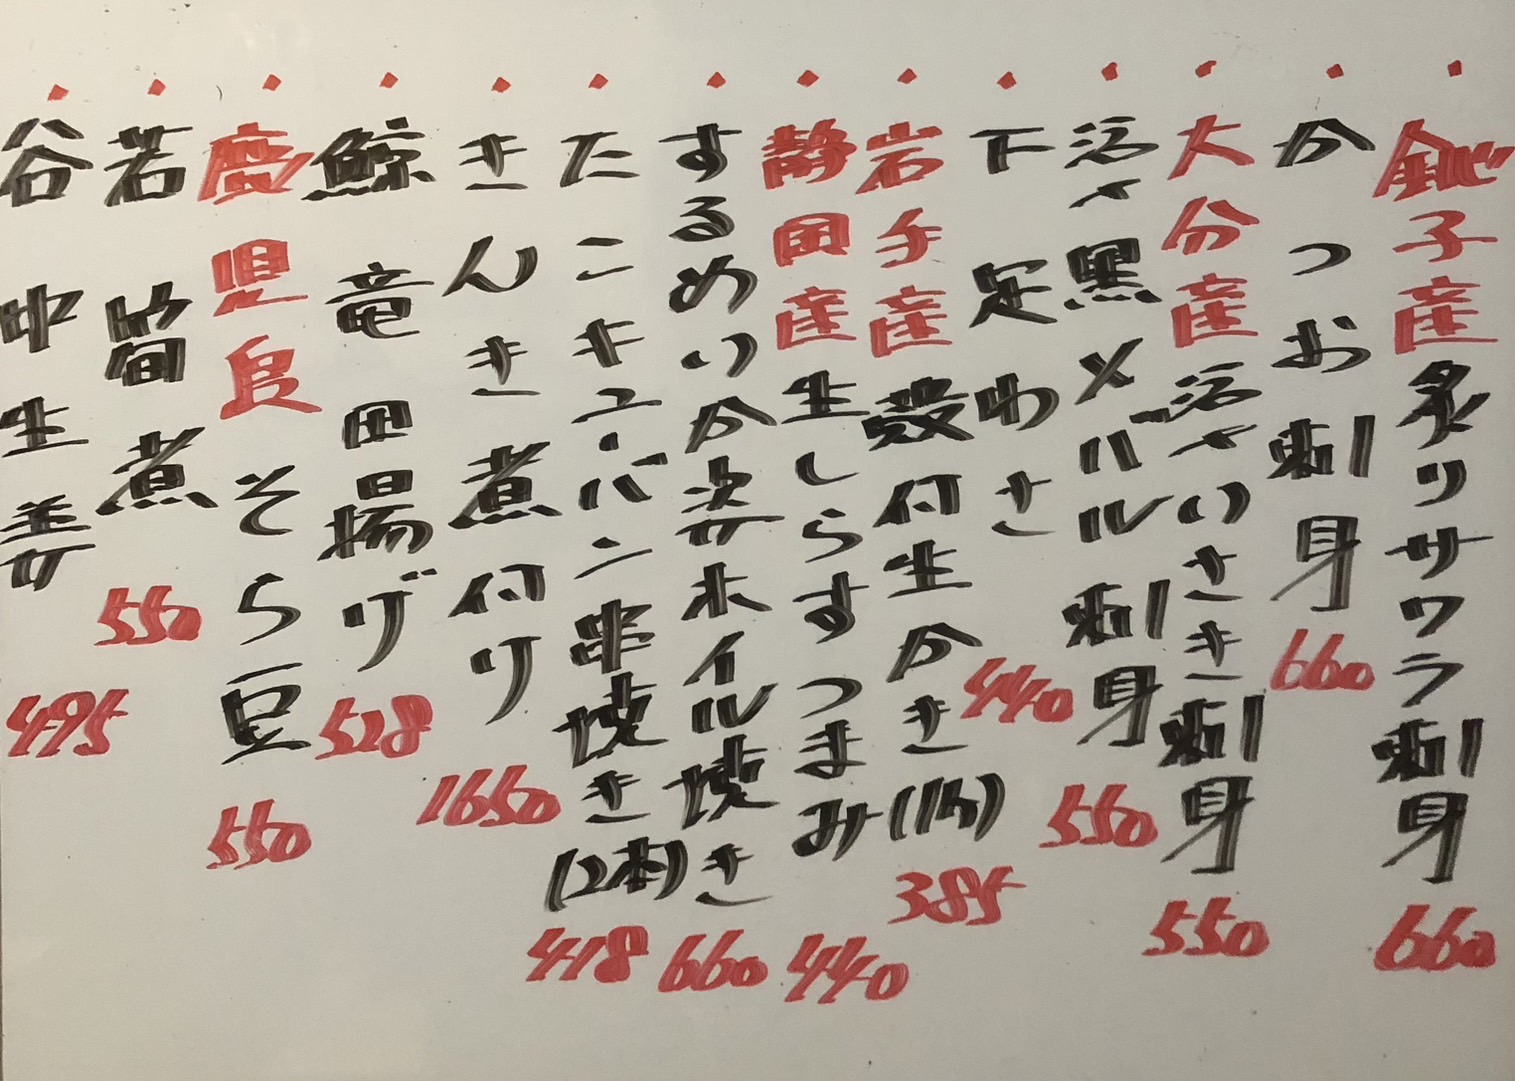 銚子産炙りサワラ刺身 660
かつお刺身 660
大分産活〆いさき刺身 550
活〆黒メバル刺身 550
下足わさ 440
岩手産殻付生かき(1ヶ) 385
静岡産生しらすつまみ 440
するめいか姿ホイル焼き 660
たこキューバン串焼き(2本) 418
きんき煮付け 1650
鯨竜田揚げ 528
鹿児島そら豆 550
若筍煮 550
谷中生姜 495